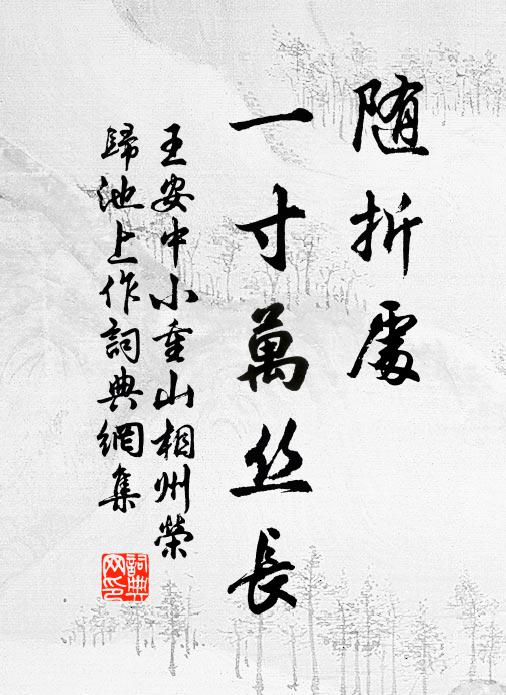 随折處
一寸萬丝長
王安中小重山相州榮
歸池上作詞典網集
詞典
网印